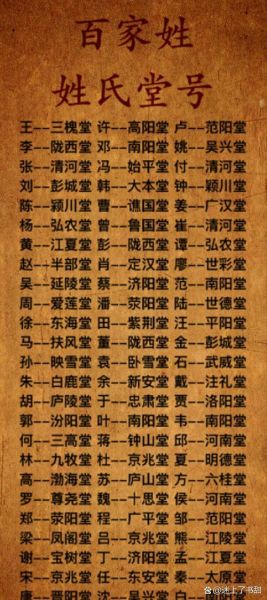 百家姓
姓氏堂号
王--三槐堂 许--高阳堂 卢--范阳堂
李--陇西堂 邓--南阳堂 姚--吴兴堂
张--清河堂 冯--始平堂 付--清河堂
刘--彭城堂 韩--大本堂 钟--颍川堂
陈--颖川堂 曹--谯国堂 姜--广汉堂
杨--弘农堂 曾--鲁国堂 崔--清河堂
黄--江夏堂 彭--陇西堂 谭--弘农堂
赵--半部堂 肖--定汉堂 廖--世彩堂
吴--延陵堂 蔡--济阳堂 范--南阳堂
周--爱莲堂 潘--荥阳堂 陆--世德堂
徐--东海堂 田--紫荆堂 汪--平阳堂
马--扶风堂 董--陇西堂 金--彭城堂
孙--映雪堂 袁--卧雪堂 石--武威堂
朱--白鹿堂 余--新安堂 戴--注礼堂
胡--庐陵堂 于--忠肃堂 贾--洛阳堂
郭--汾阳堂 叶--南阳堂 韦--南阳堂
何--三高堂 蒋--钟山堂 邱--河南堂
林--九牧堂 杜--京兆堂 夏--明德堂
高--渤海堂 苏--庐山堂 方--六桂堂
罗--尊尧堂 魏--十思堂 侯--河南堂
郑--荥阳堂 程--广平堂 邹--范阳堂
梁--凤阁堂 吕--京兆堂 熊--江陵堂
谢--宝树堂 丁--济阳堂 孟--江夏堂
宋--京兆堂 任--东安堂 秦--太原堂
唐--晋阳堂 沈--吴兴堂 白
迷上了书甜